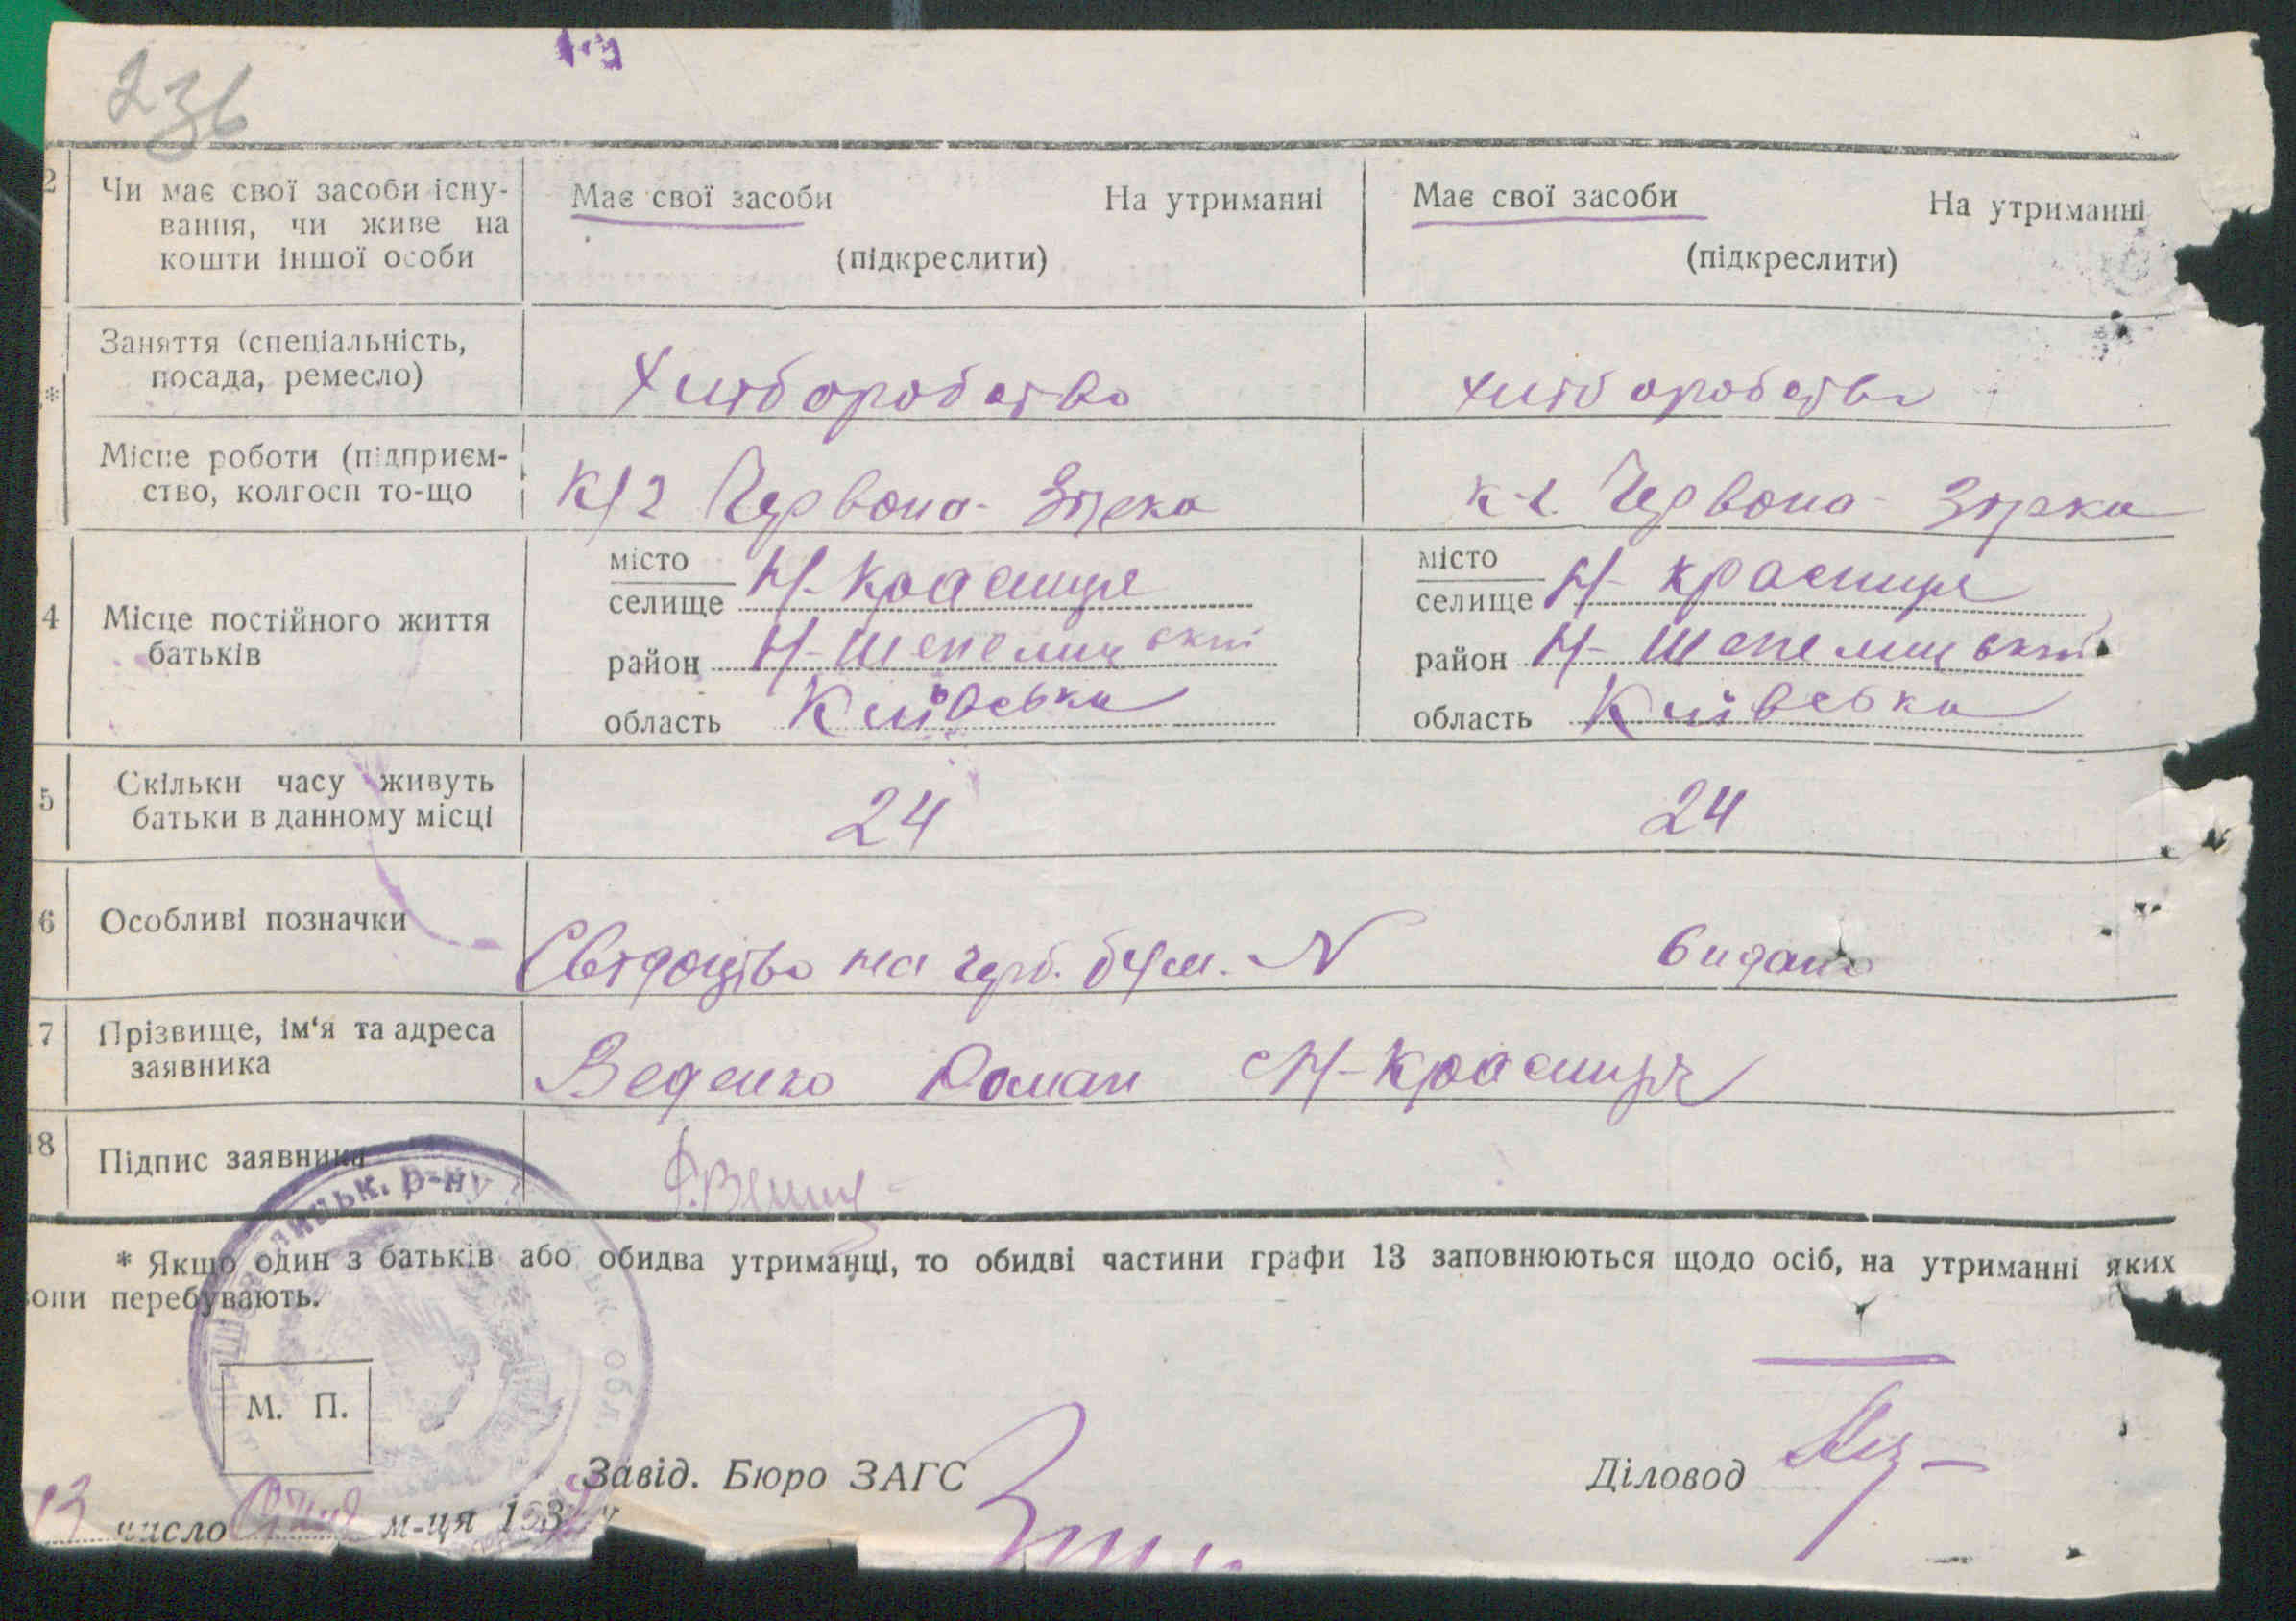 236
2 Чи має свої засоби існу- Має свої засоби На утриманні Має свої засоби На утриманні
вання, чи живе на
кошти іншої особи (підкреслити) (підкреслити)
Заняття (спеціальність,
* посада, ремесло) Хліборобство хліборобство
Місце роботи (підприєм-
ство, колгосп то-що К/г Червона-Зірка к-г Червона-Зірка
місто місто
селище Н-Красниця селище Н-Красниця
4 Місце постійного життя
батьків район Н-Шепелицький район Н-Шепелицький
область Київська область Київська
5 Скільки часу живуть
батьки в данному місці 24 24
6 Особливі позначки Свідоцтво на герб. бум. N видано
7 Прізвище, ім'я та адреса
заявника Веденко Роман с Н-Красниця
18 Підпис заявника
* Якщо один з батьків або обидва утриманці, то обидві частини графи 13 заповнюються щодо осіб, на утриманні яких
вони перебувають.
лицьк. р-ну обл.
М. П.
Завід. Бюро ЗАГС Діловод
13 число м-ця 193